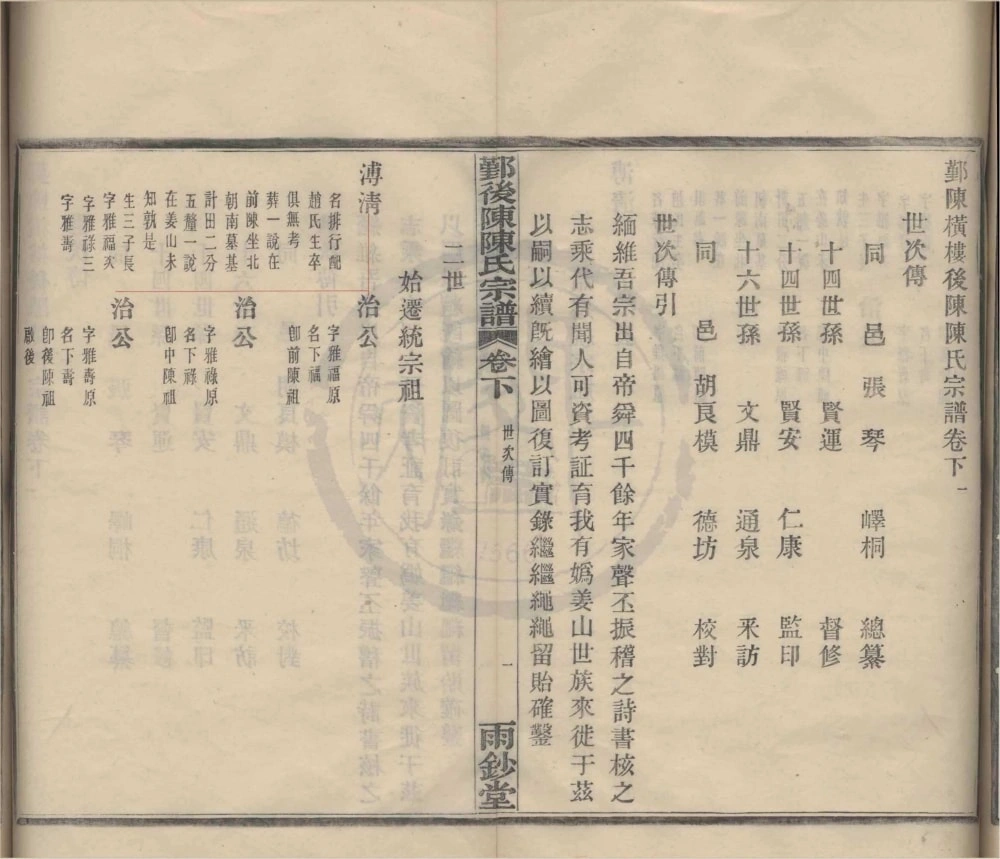 鄞陳橫樓後陳陳氏宗譜卷下 一
世次傳
同邑張琴 嶧桐 總纂
十四世孫 賢運 督修
十四世孫 賢安 仁康 監印
十六世孫 文鼎 通泉 釆訪
同邑胡良模 德坊 校對
世次傳引
緬維吾宗出自帝舜四千餘年家聲丕振稽之詩書核之
志乘代有聞人可資考証育我有嬀姜山世族來徙于茲
以嗣以續旣繪以圖復訂實錄繼繼繩繩留貽確鑿
鄞後陳陳氏宗譜 卷下 世次傳 一 雨鈔堂
二世
始遷統宗祖
溥清
名排行配
趙氏生卒
俱無考
葬一說在
前陳坐北
朝南墓基
計田二分
五釐一說
在姜山未
知孰是
生三子長
字雅福次
字雅祿三
字雅壽
治公
字雅福原
名下福
卽前陳祖
治公
字雅祿原
名下祿
卽中陳祖
治公
字雅壽原
名下壽
卽後陳祖
啟後